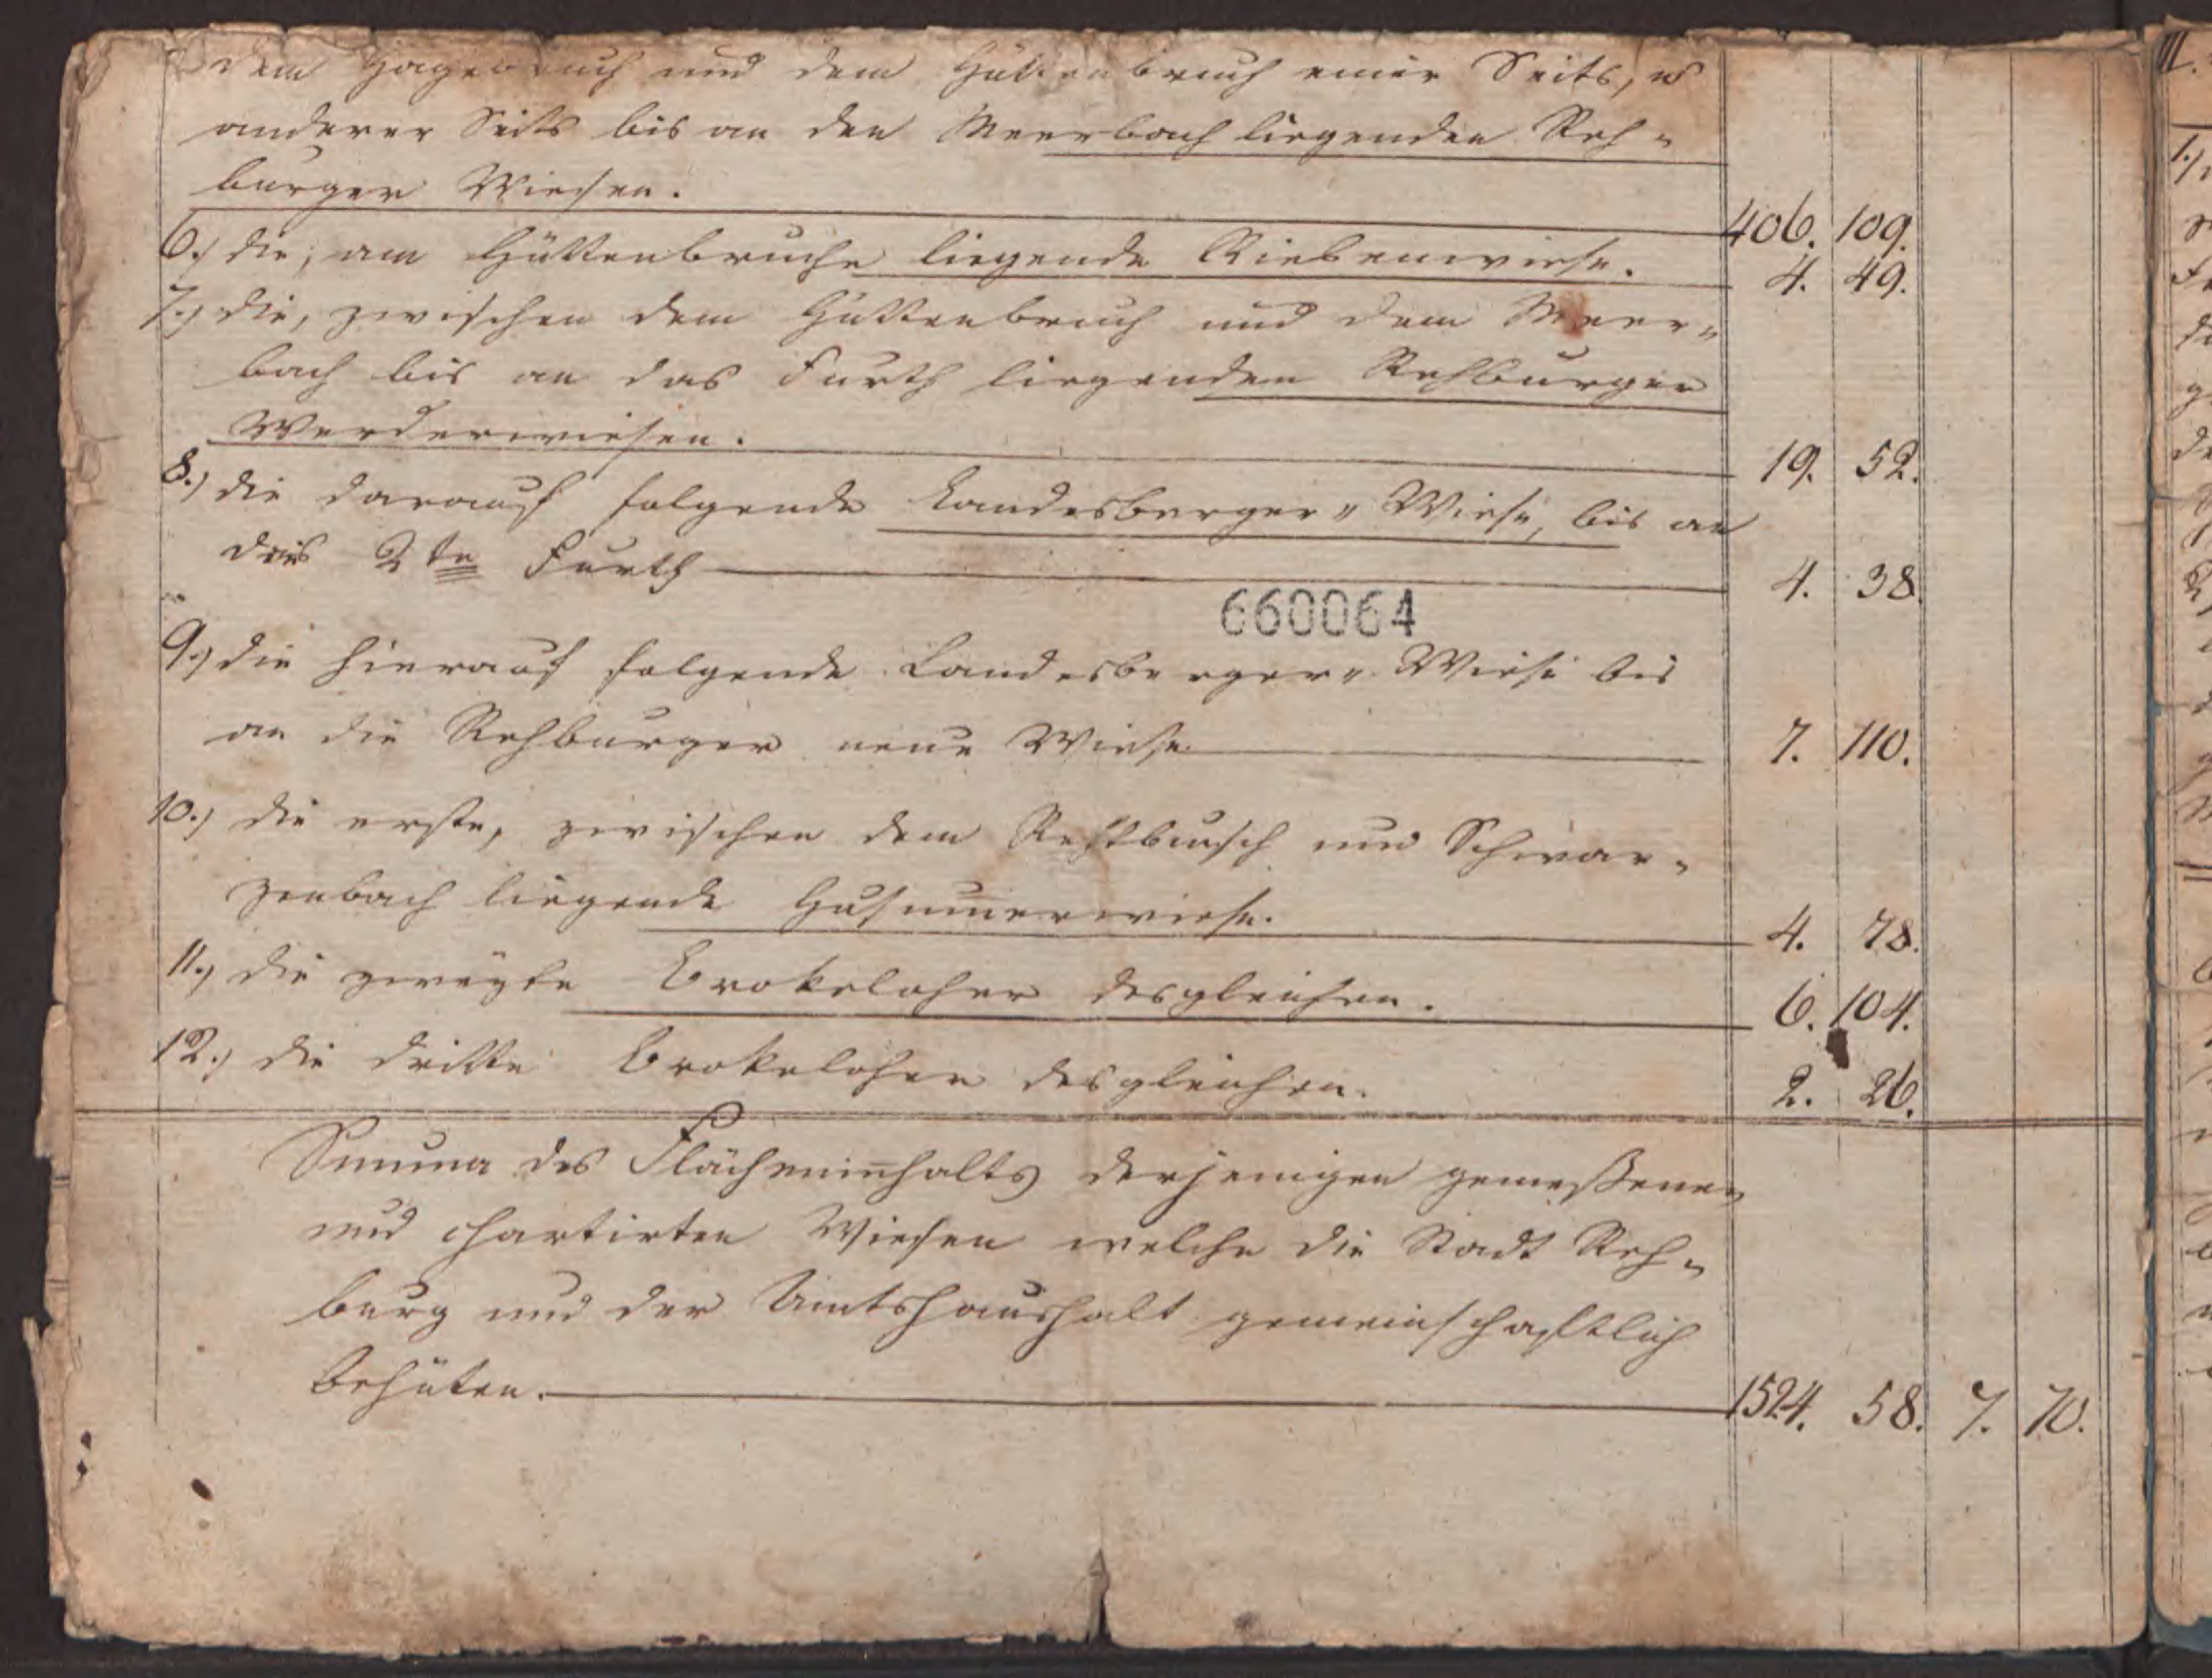 dem Hagebruch und dem Hüttenbruch einer Seits, u
anderer Seits bis an den Meerbach liegenden Reh-
burger Wiesen. 406. 109.
6.) die, am Hüttenbruche liegende Riebenwiese. 4. 49.
7.) die, zwischen dem Hüttenbruch und dem Meer-
bach bis an das Furth liegenden Rehburger
Werderwiesen. 19. 52.
8.) die darauf folgende Landesberger-Wiese, bis an
das 2te Furth 4. 38.
660064
9.) die hierauf folgende Landesberger-Wiese bis
an die Rehburger neue Wiese 7. 110.
10.) die erste, zwischen dem und Schwar-
zenbach liegende Husumerwiese. 4. 78.
11.) die zweyte Brokeloher desgleichen. 6. 104.
12.) die dritte Brokeloher desgleichen. 2. 26.
Summa des Flächeninhalts derjenigen gemeßenen
und chartirten Wiesen welche die Stadt Reh-
burg und der Amtshaushalt gemeinschaftlich
behüten. 1524. 58. 7. 70.